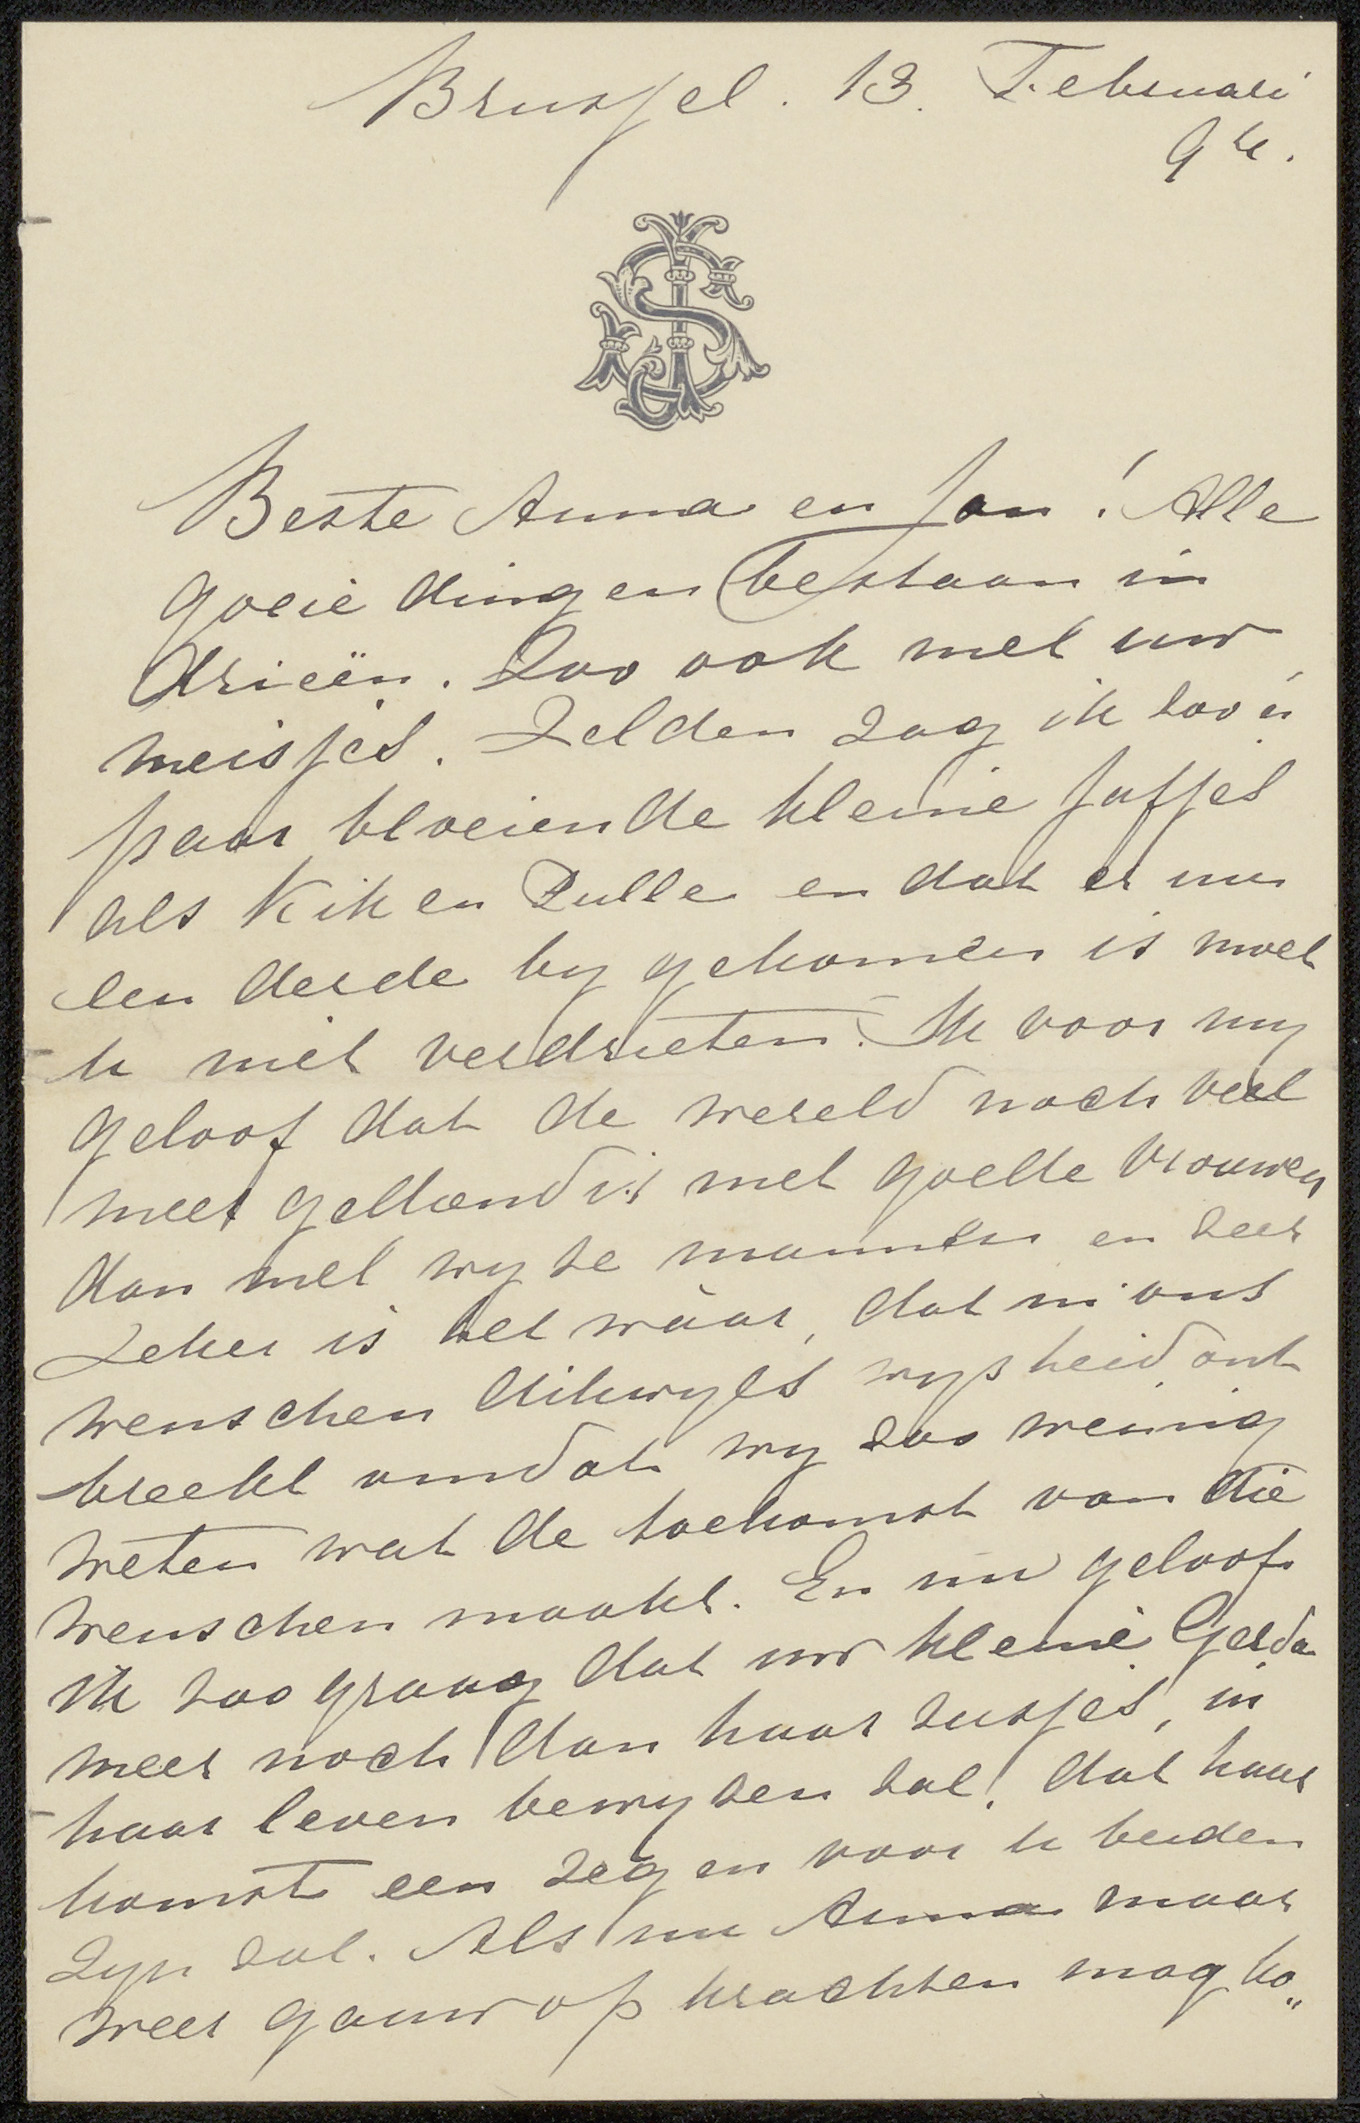 Brussel. 13 Februari
94.
Beste Anna en Jan! Alle
goeie dingen bestaan in
drieën. Zoo ook met uw
meisjes. Zelden zag ik zoo 'n
paar bloeiende kleine jufjes
als Kik en Zulle en dat er nu
een derde by gekomen is moet
u niet verdrieten. Ik voor my
geloof dat de wereld noch veel
meer gediend is met goede vrouwen
dan met wyze mannen en zeer
zeker is het wáár, dat in ons
wenschen dikwyls wysheid ont
breekt omdat wy zoo weinig
weten wat de toekomst van die
wenschen maakt. En nu geloof
ik zoo graag dat uw kleine Gerda
meer noch dan haar zusjes, in
haar leven bewyzen zal, dat haar
komst een zegen voor u beiden
zyn zal. Als nu Anna maar
weer gauw op krachten mag ko„